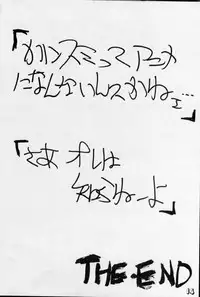 「ガンスミってアニメ
になんないんスかねェ…」
「さあ オレは
知らねーよ」
THE END
33